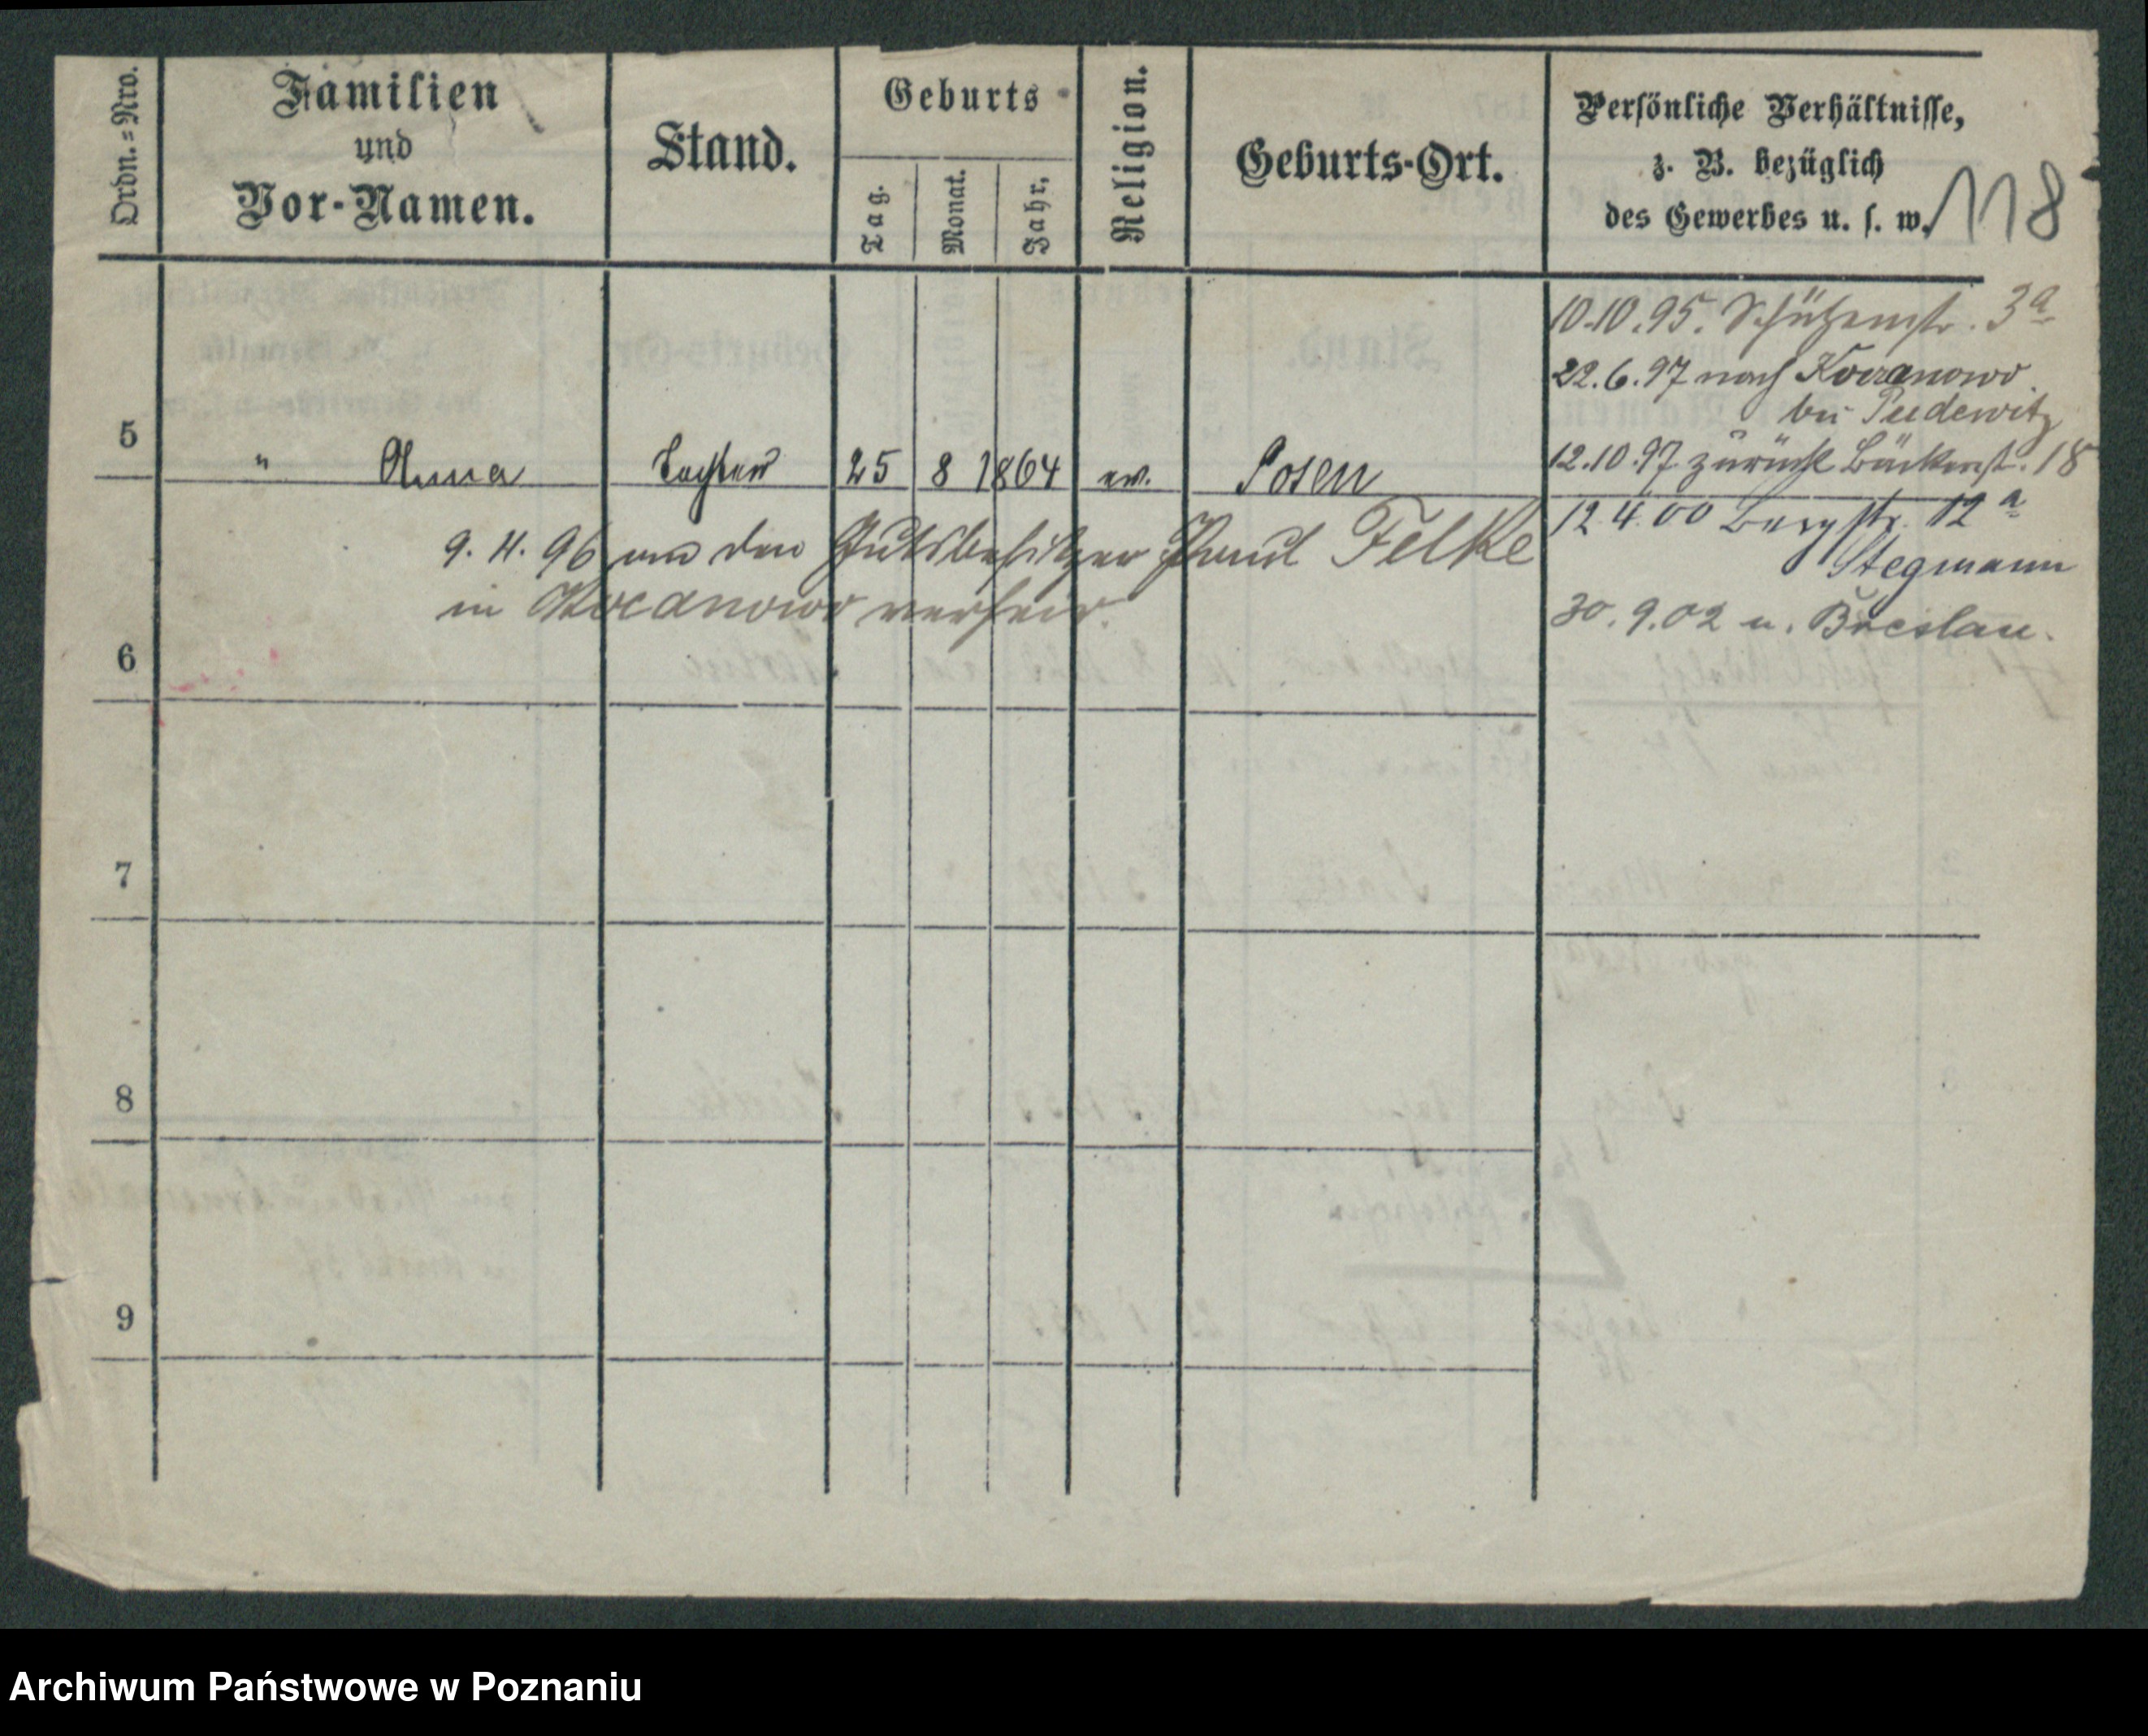 Ordn.=Nro.
Familien
und
Vor-Namen.
Stand.
Geburts
Tag.
Monat.
Jahr.
Religion.
Geburts-Ort.
Persönliche Verhältnisse,
z. B. bezüglich
des Gewerbes u. s. w.
118
10.10.95. Schützenstr. 3a
22.6.97 nach Kocanowo
bei Pudewitz
5 " Anna Tochter 25 8 1864 ev. Posen
12.10.97. zurück Bäckerst. 18
12.4.00 Bergstr. 12a
Stegmann
30.9.02 n. Breslau.
9. 11. 96 an den Gutsbesitzer Paul Felke
in Kocanowo verheir.
6
7
8
9
Archiwum Państwowe w Poznaniu